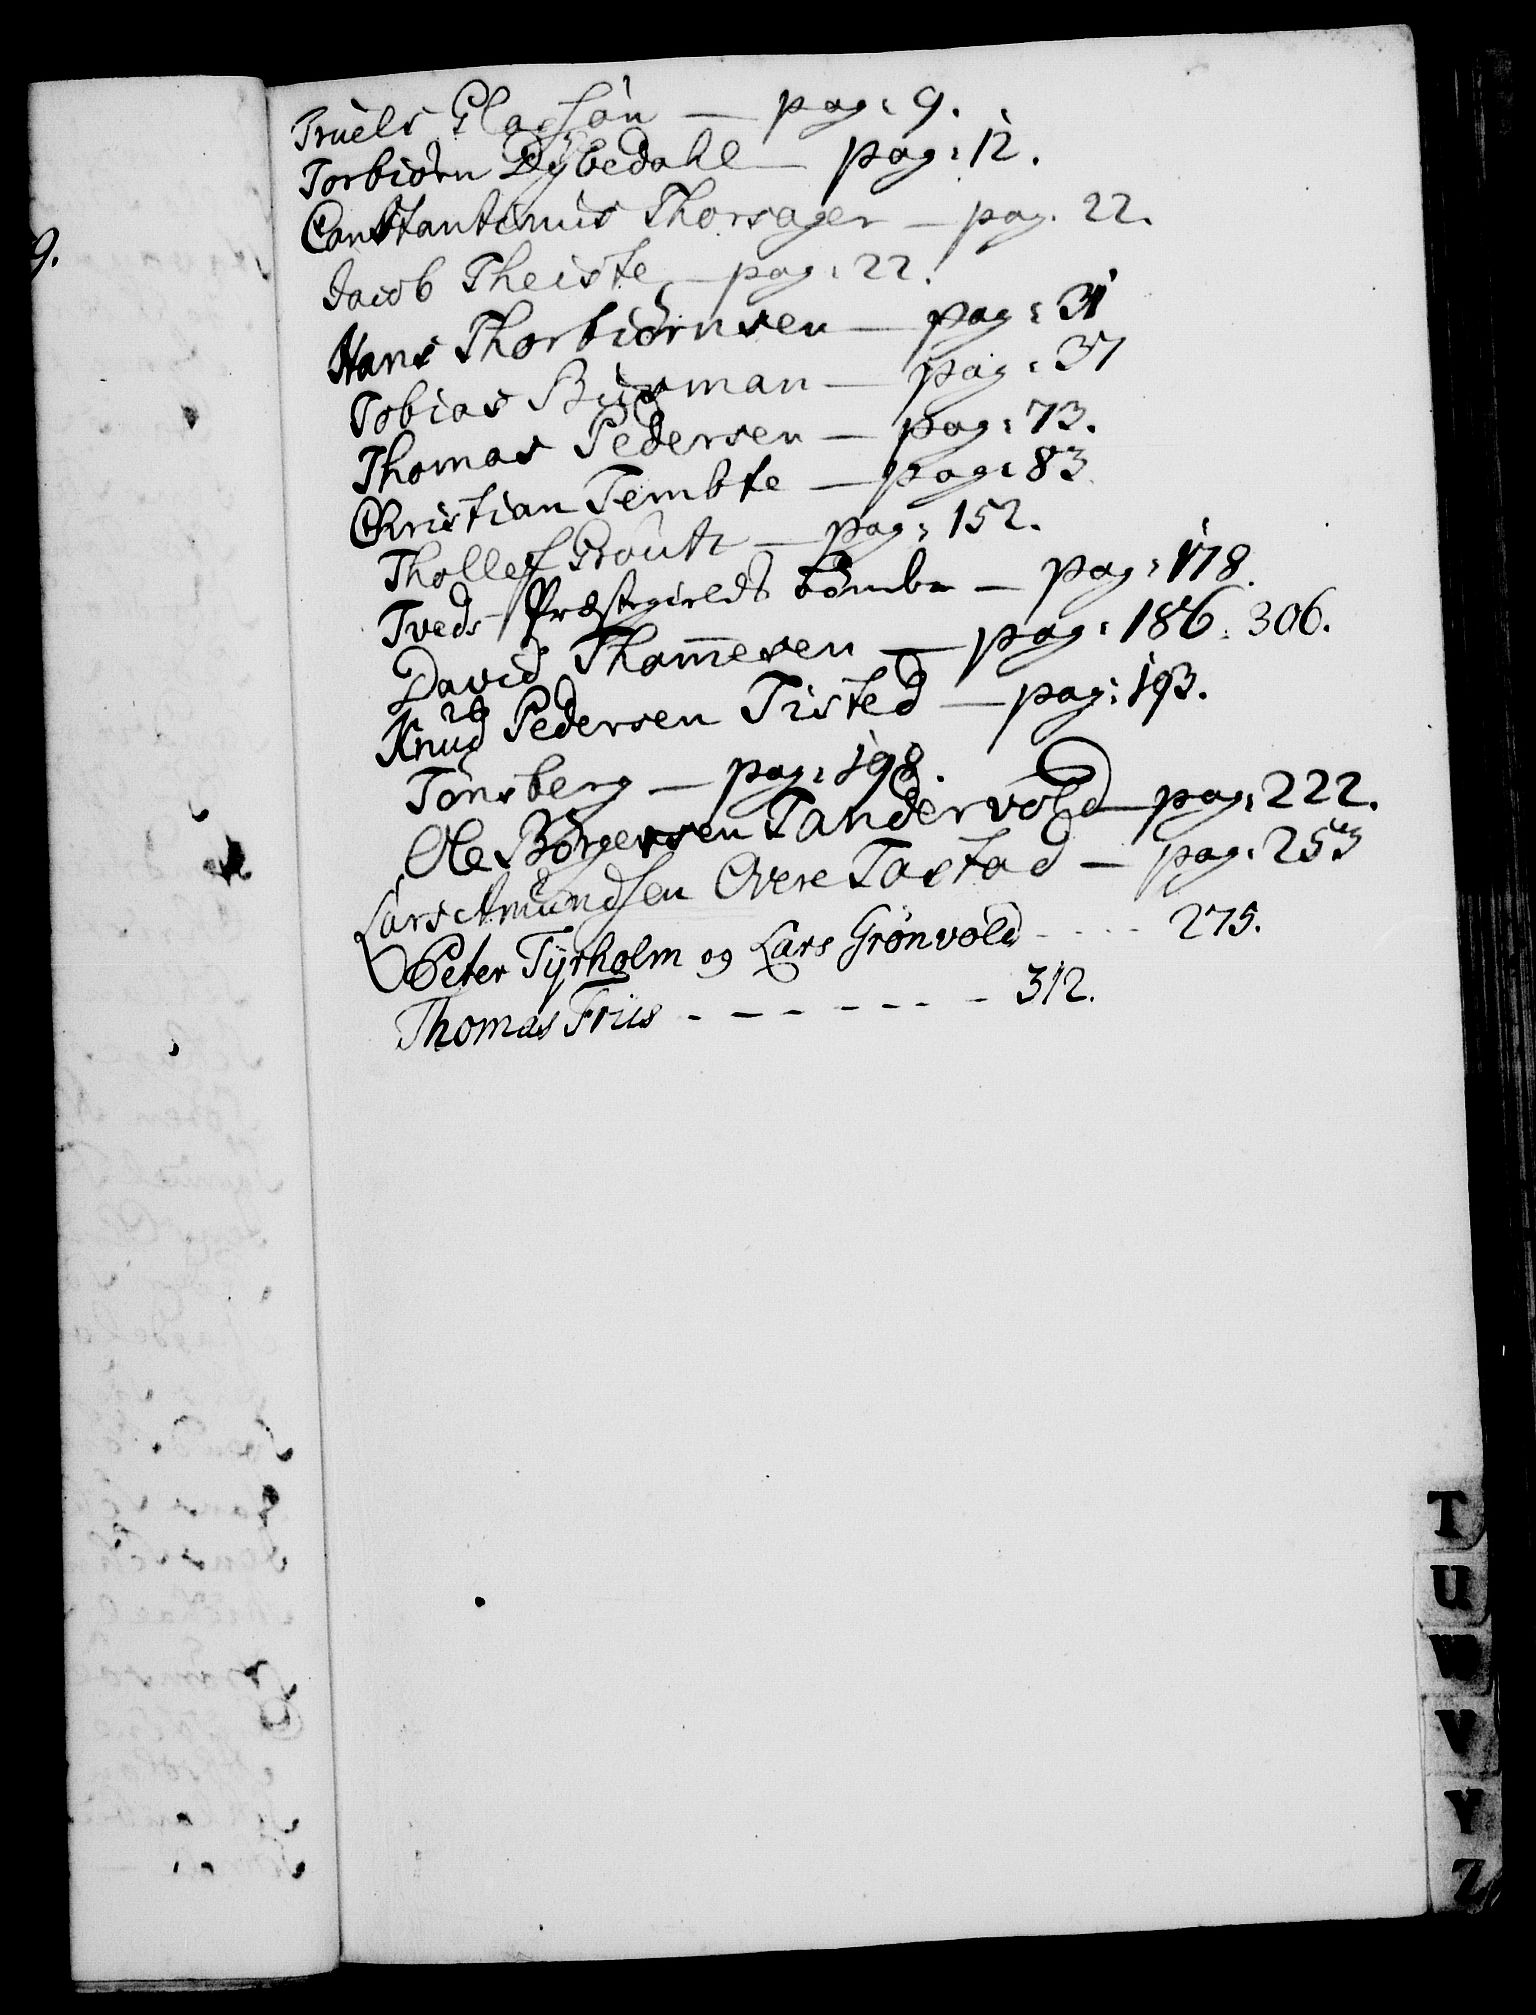 9.
Truels Clagsøn — pag: 9.
Torbiørn Dybedahl — pag: 12.
Constantinus Thorsager — pag. 22.
Jacob Theiste — pag: 22.
Hans Thorbiørnsen — pag: 31
Tobias — pag: 37
Thomas Pedersen — pag: 73.
Christian Tembte — pag: 83
Thollef — pag: 152.
Tveds Præstegields — pag: 178.
David Thomesen — pag: 186. 306.
Knud Pedersen Tisted — pag: 193.
Tønsberg — pag: 198.
Ole Børgersen Tandervold — pag: 222.
Lars Amundsen Overe Tastad — pag: 253
Peter Tyrholm og Lars Grønvold - - - - 275.
Thomas Friis - - - - - - - 312.
T
U
W
V
Y
Z